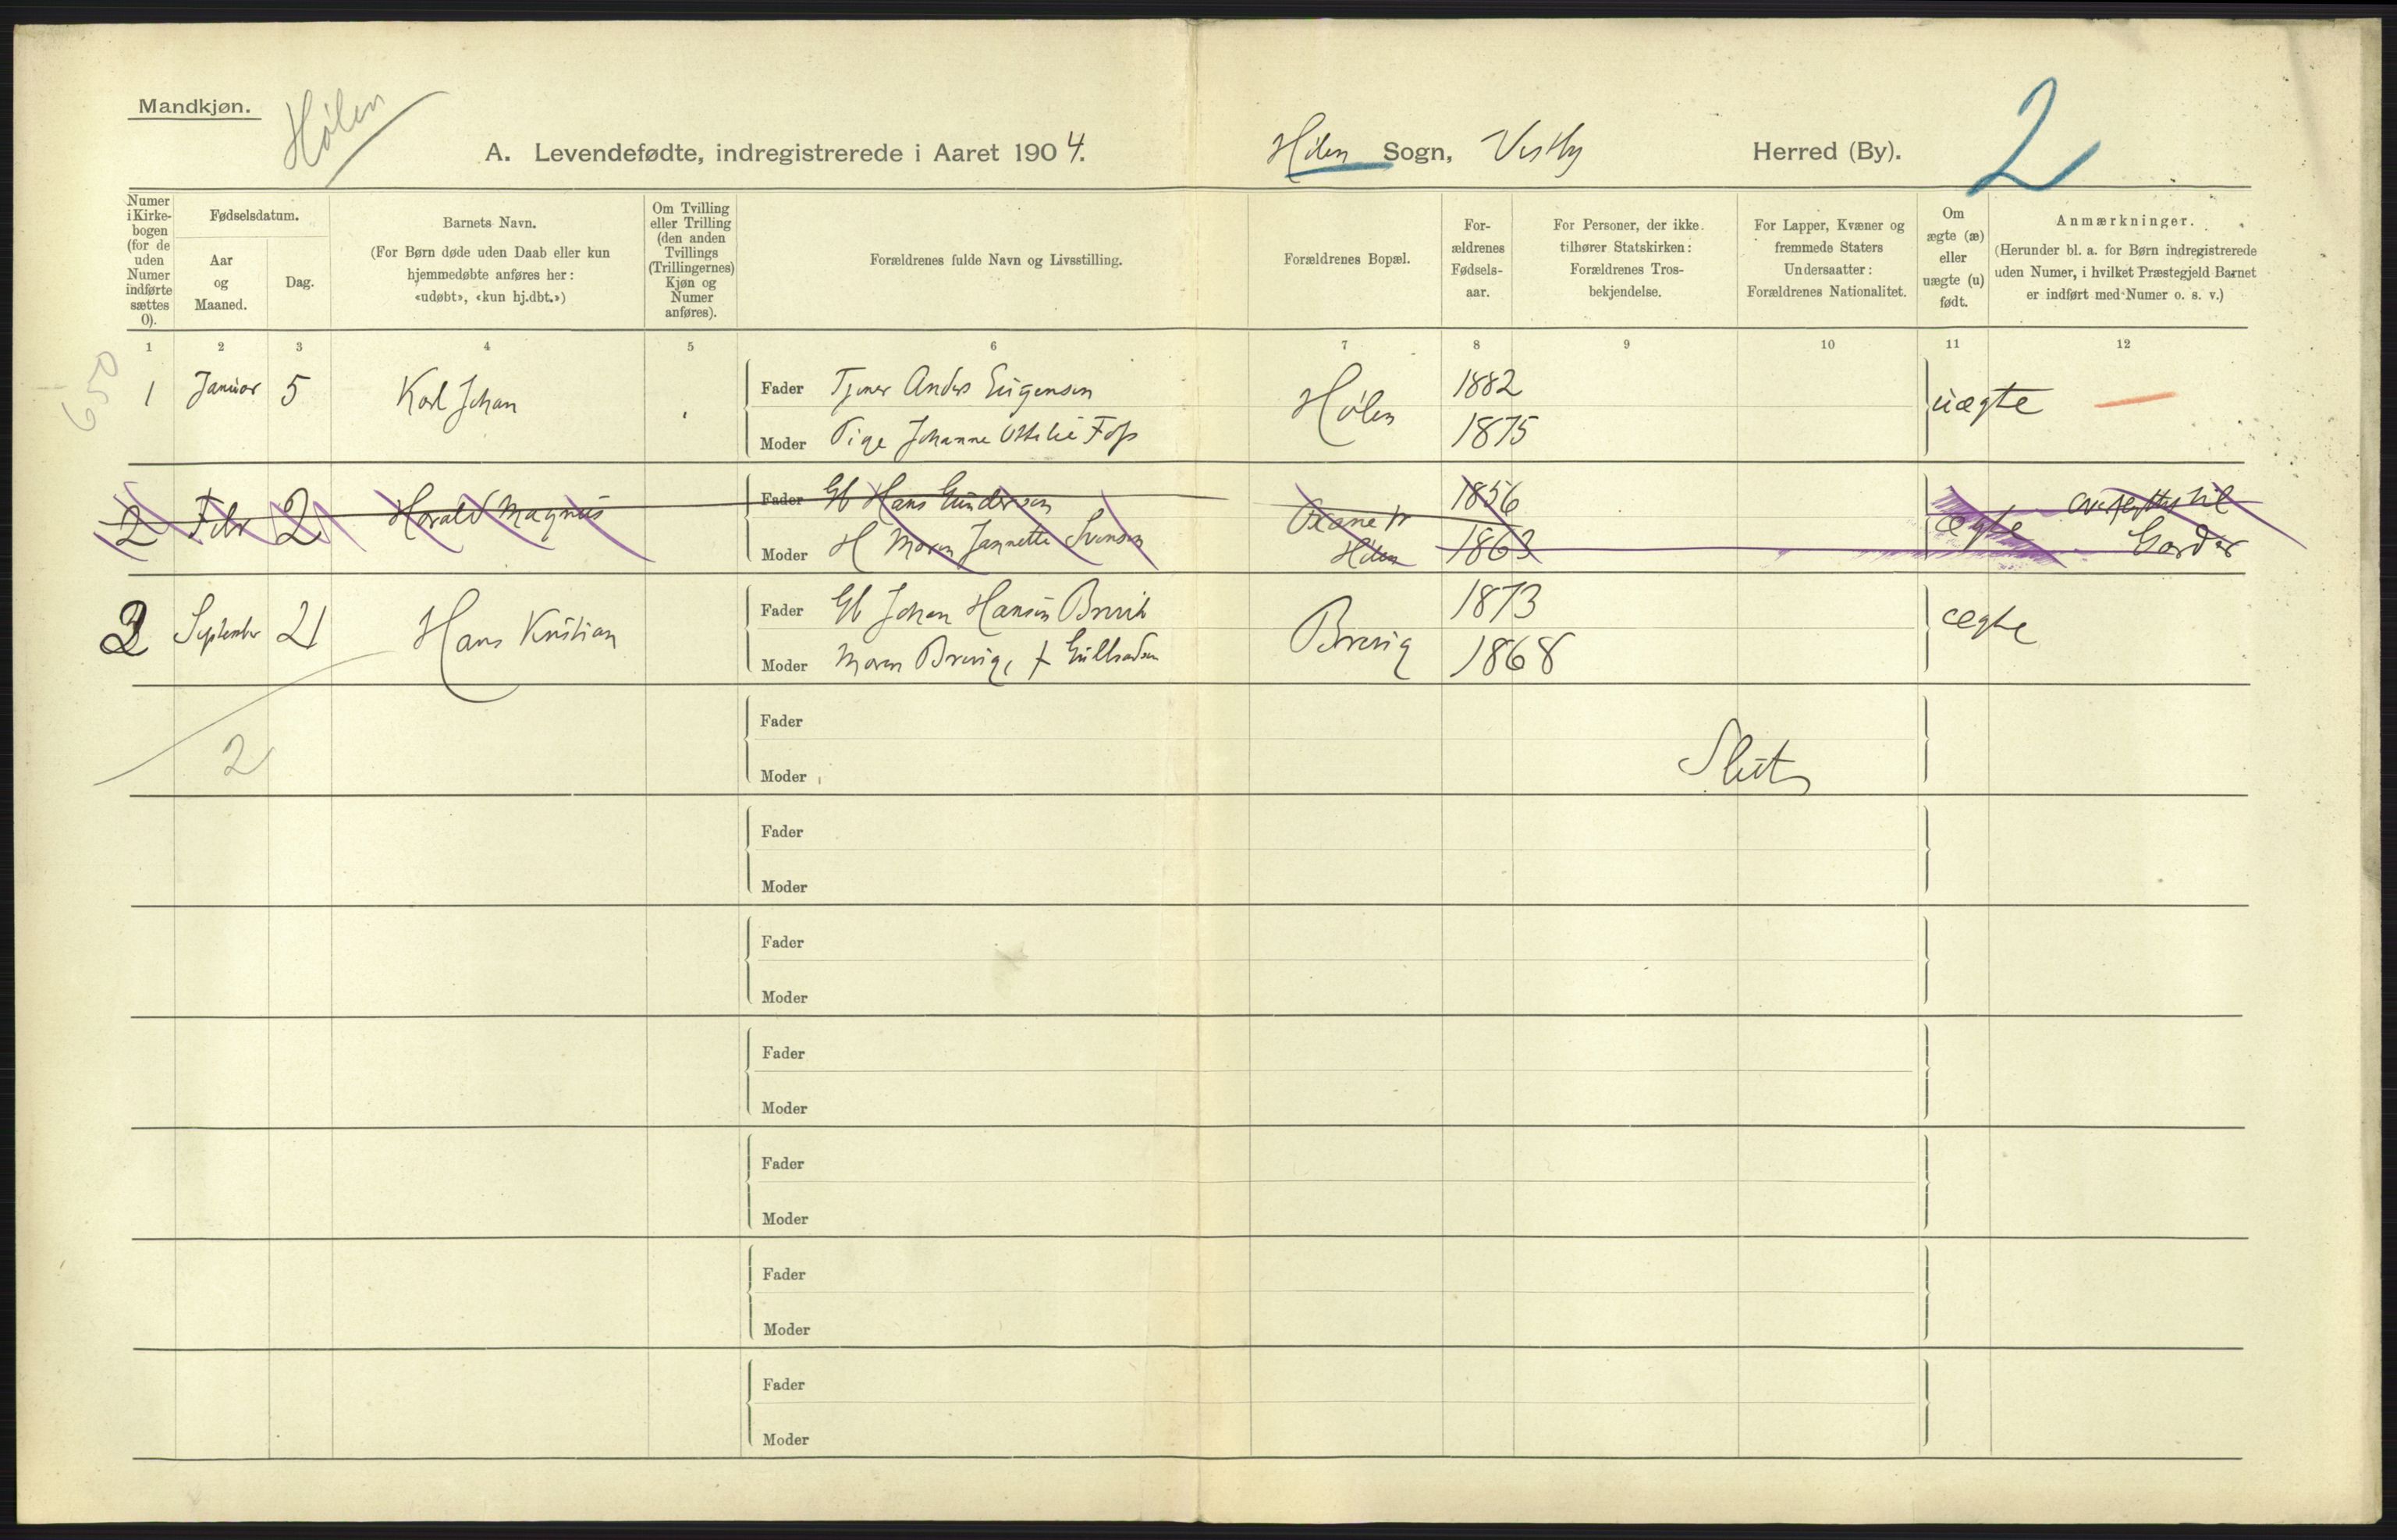 Mandkjøn.
Hølen
A. Levendefødte, indregistrerede i Aaret 1904.
Hølen Sogn, Vestby Herred (By).
2
Numer i Kirke-bogen (for de uden Numer indførte sættes 0).
Fødselsdatum.
Aar og Maaned.
Dag.
Barnets Navn.
(For Børn døde uden Daab eller kun
hjemmedøbte anføres her:
«udøbt», «kun hj.dbt.»)
Om Tvilling
eller Trilling
(den anden
Tvillings
(Trillingernes)
Kjøn og
Numer
anføres).
Forældrenes fulde Navn og Livsstilling.
Forældrenes Bopæl.
For-
ældrenes
Fødsels-
aar.
For Personer, der ikke
tilhører Statskirken:
Forældrenes Tros-
bekjendelse.
For Lapper, Kvæner og
fremmede Staters
Undersaatter:
Forældrenes Nationalitet.
Om
ægte (æ)
eller
uægte (u)
født.
Anmærkninger.
(Herunder bl. a. for Børn indregistrerede
uden Numer, i hvilket Præstegjeld Barnet
er indført med Numer o. s. v.)
1 2 3 4 5 6 7 8 9 10 11 12
650
1 Januar 5 Karl Johan
Fader Tjener Anders Eugensen Hølen 1882 uægte
Moder Pige Johanne Ottilie Foss 1875
2 Febr 2 Harald Magnus
Fader Gb Hans Gundersen 1856 ægte overflyttes til
Moder H Maren Jannette Svensen Hølen 1863 Garder
2 September 21 Hans Kristian
Fader Gb Johan Hansen Brevik Brevig 1873 ægte
Moder Maren Brevig, f Gulbradsen 1868
Fader
2
Slut
Moder
Fader
Moder
Fader
Moder
Fader
Moder
Fader
Moder
Fader
Moder
Fader
Moder